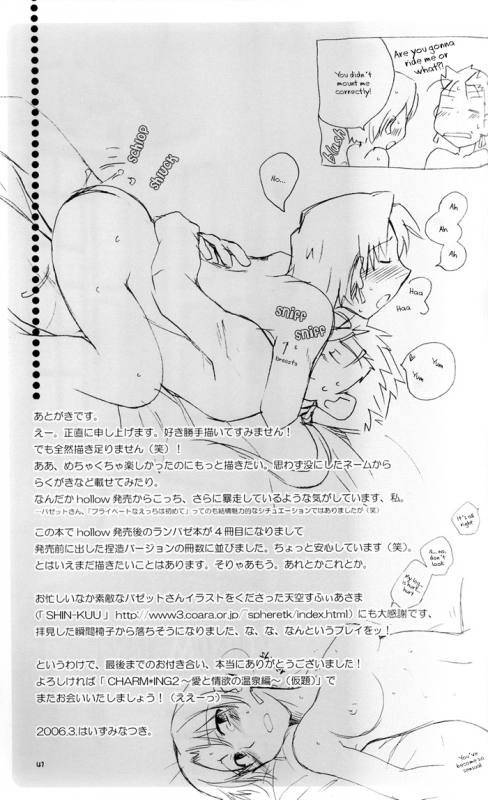 Are you gonna
ride me or
what?!
You didn't
mount me
correctly!
blush
schlop
shluck
No...
Ah
Ah
Ah
Haa
Haa
sniff
sniff
breasts
Yum
Yum
あとがきです。
えー。正直に申し上げます。好き勝手描いてすみません！
でも全然描き足りません（笑）！
ああ、めちゃくちゃ楽しかったのにもっと描きたい。思わず没にしたネームから
らくがきなど載せてみたり。
なんだか hollow 発売からこっち、さらに暴走しているような気がしています、私。
…バゼットさん、「プライベートなえっちは初めて」っての も結構魅力的なシチュエーションではありましたが（笑）
この本で hollow 発売後のランバゼ本が４冊目になりまして
発売前に出した捏造バージョンの冊数に並びました。ちょっと安心しています（笑）。
とはいえまだ描きたいことはあります。そりゃあもう。あれとかこれとか。
お忙しいなか素敵なバゼットさんイラストをくださった天空すふぃあさま
（「SHIN-KUU 」 http://www3.coara.or.jp/~spheretk/index.html）にも大感謝です、
拝見した瞬間椅子から落ちそうになりました、な、な、なんというプレイをッ！
というわけで、最後までのお付き合い、本当にありがとうございました！
よろしければ「 CHARM*ING2 ～愛と情欲の温泉編～（仮題）」で
またお会いいたしましょう！（ええーっ）
2006.3.はいずみなつき。
It's all
right
a...no,
don't
look
You've
become so
sensual
41